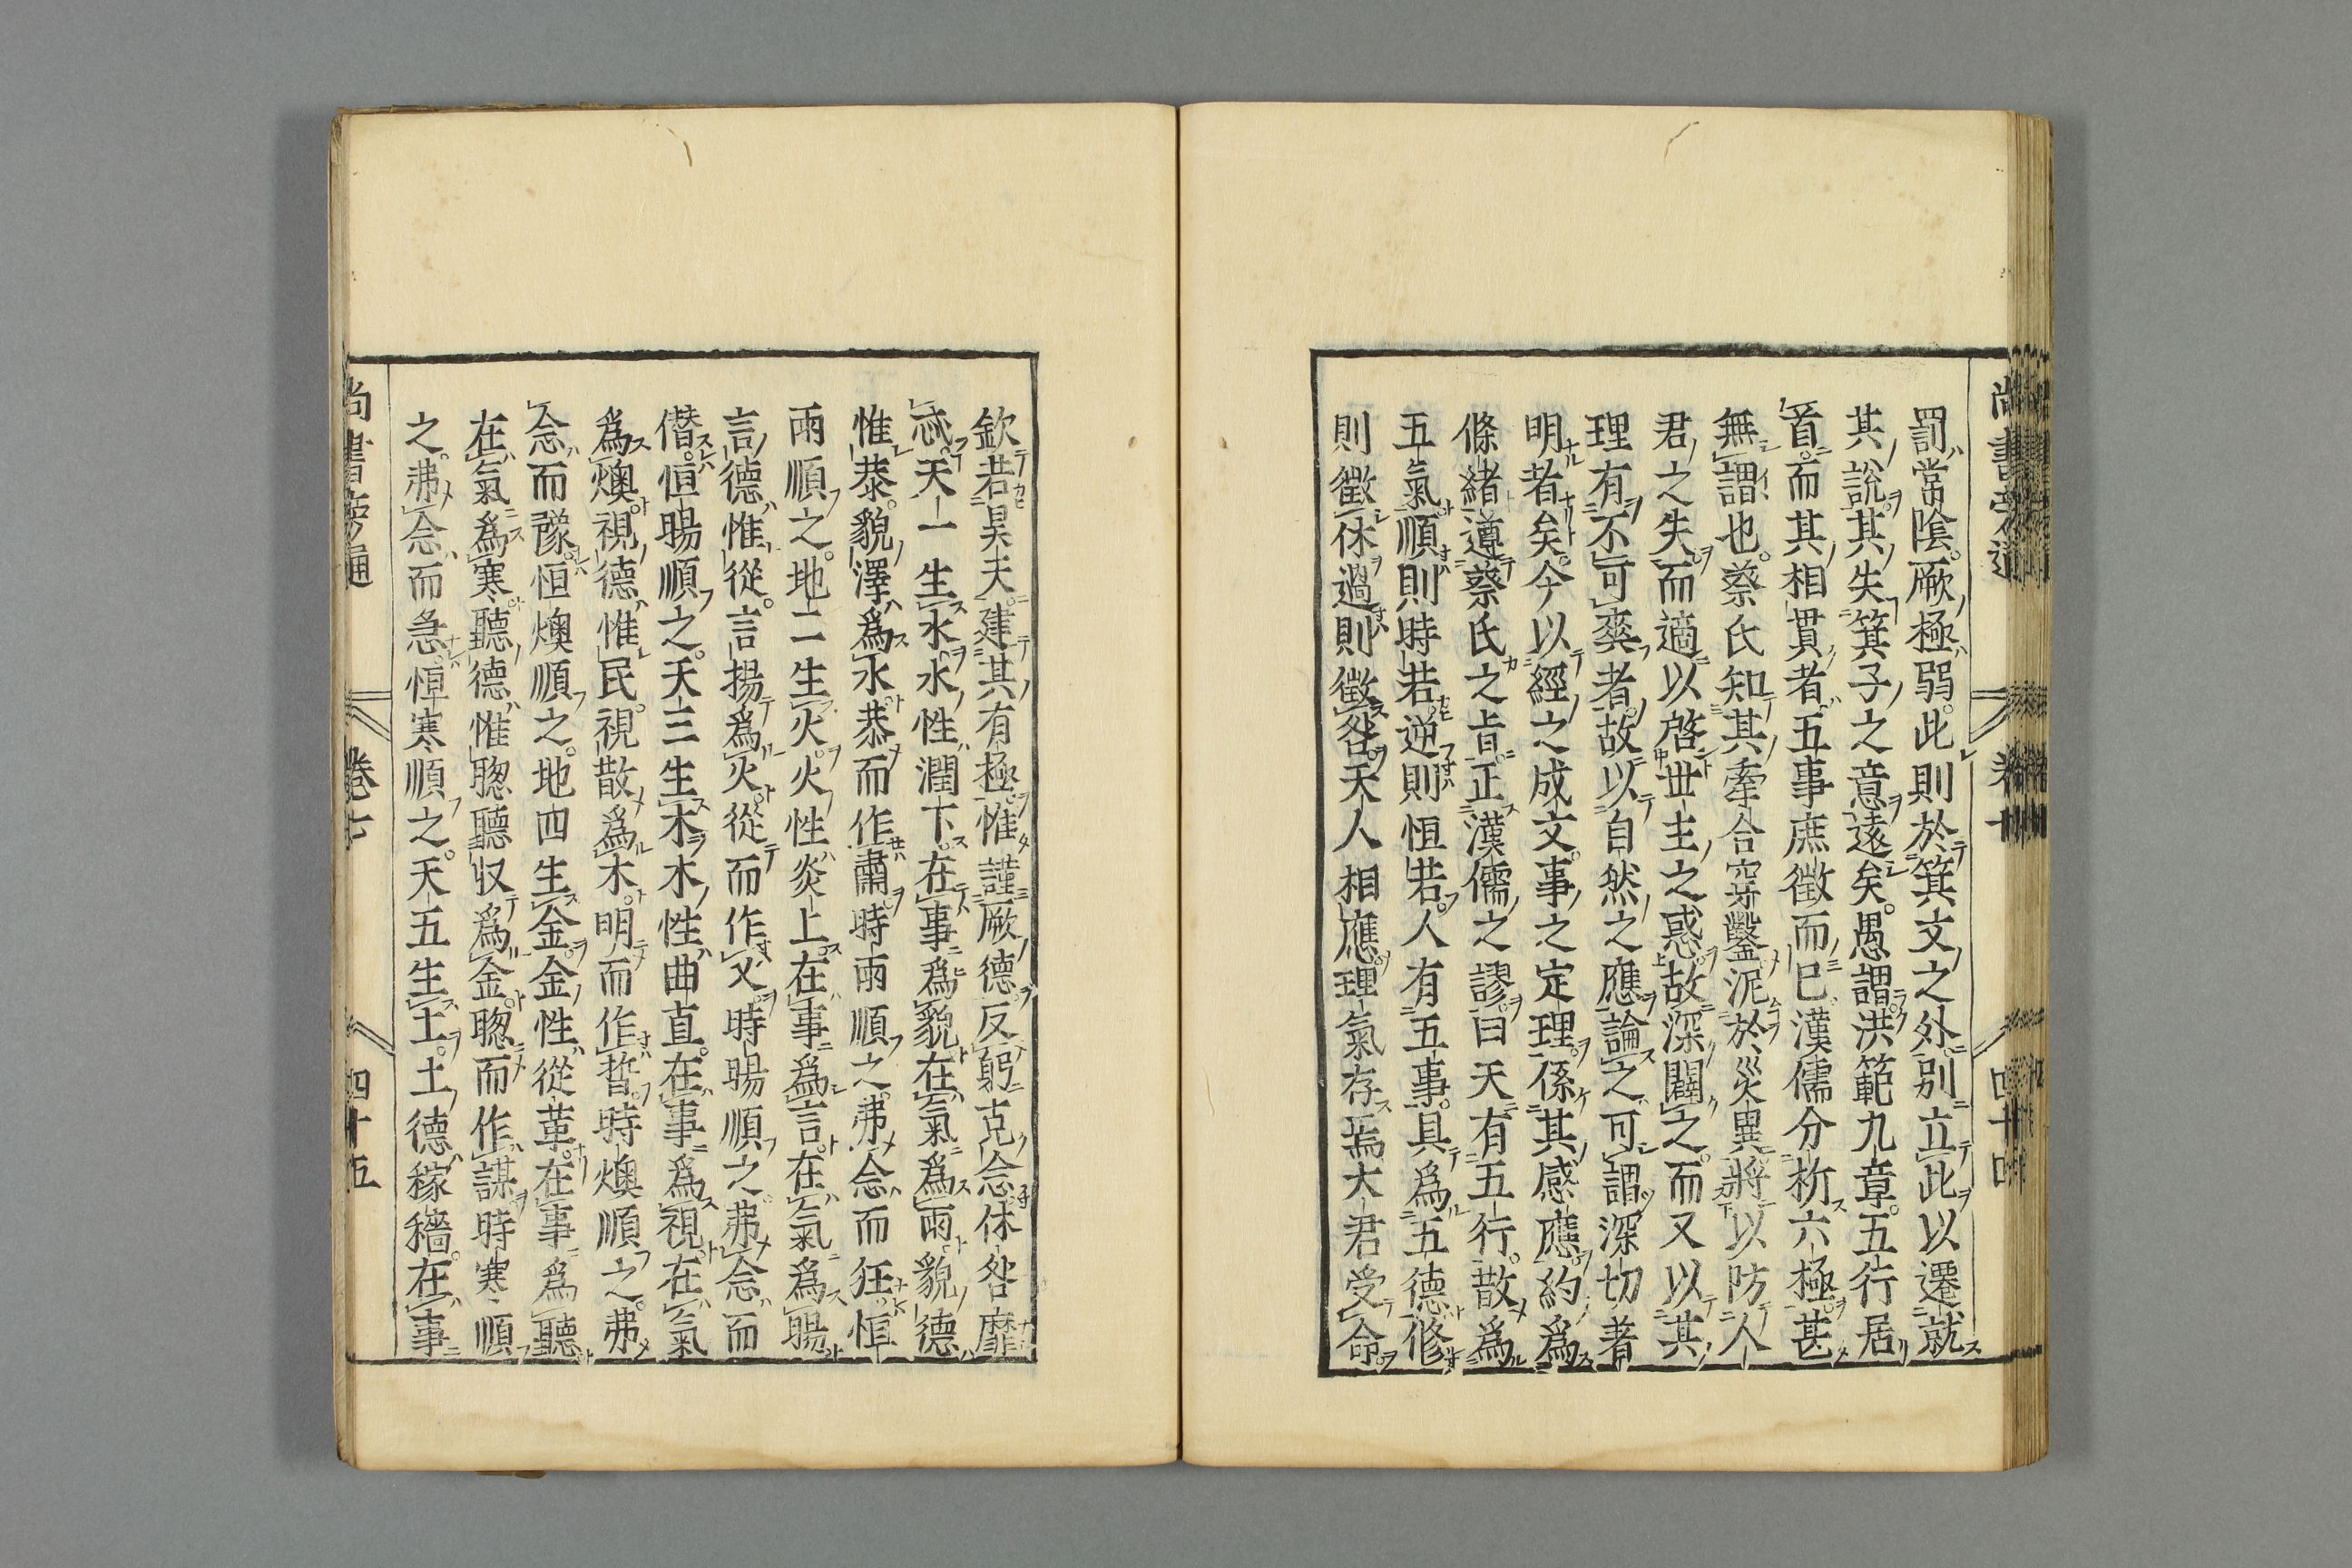 罰常陰。厥極弱。此則於箕文之外。別立此以遷就
其說。其失箕子之意遠矣。愚謂洪範九章。五行居
首。而其相貫者。五事庶徵而已。漢儒分析六極。甚
無謂也。蔡氏知其牽合穿鑿泥於災異。將以防人
君之失。而適以啓世主之惑。故深闢之。而又以其
理有不可爽者。故以自然之應論之。可謂深切著
明者矣。今以經之成文。事之定理。係其感應。約為
條緒。遵蔡氏之旨。正漢儒之謬。曰天有五行。散為
五氣。順則時若。逆則恒若。人有五事。具為五德。修
則徵休。過則徵咎。天人相應。理氣存焉。大君受命。
欽若昊天。建其有極。惟謹厥德。反躬克念。休咎靡
忒。天一生水。水性潤下。在事為貌。在氣為雨。貌德
惟恭。貌澤為水。恭而作肅。時雨順之。弗念而狂。恒
雨順之。地二生火。火性炎上。在事為言。在氣為暘。
言德惟從。言揚為火。從而作乂。時暘順之。弗念而
僭。恒暘順之。天三生木。木性曲直。在事為視。在氣
為燠。視德惟民。視散為木。明而作哲。時燠順之。弗
念而豫。恒燠順之。地四生金。金性從革。在事為聽。
在氣為寒。聽德惟聦。聽収為金。聦而作謀。時寒順
之。弗念而急。恒寒順之。天五生土。土德稼穡。在事
尚書旁通 卷七 四十五